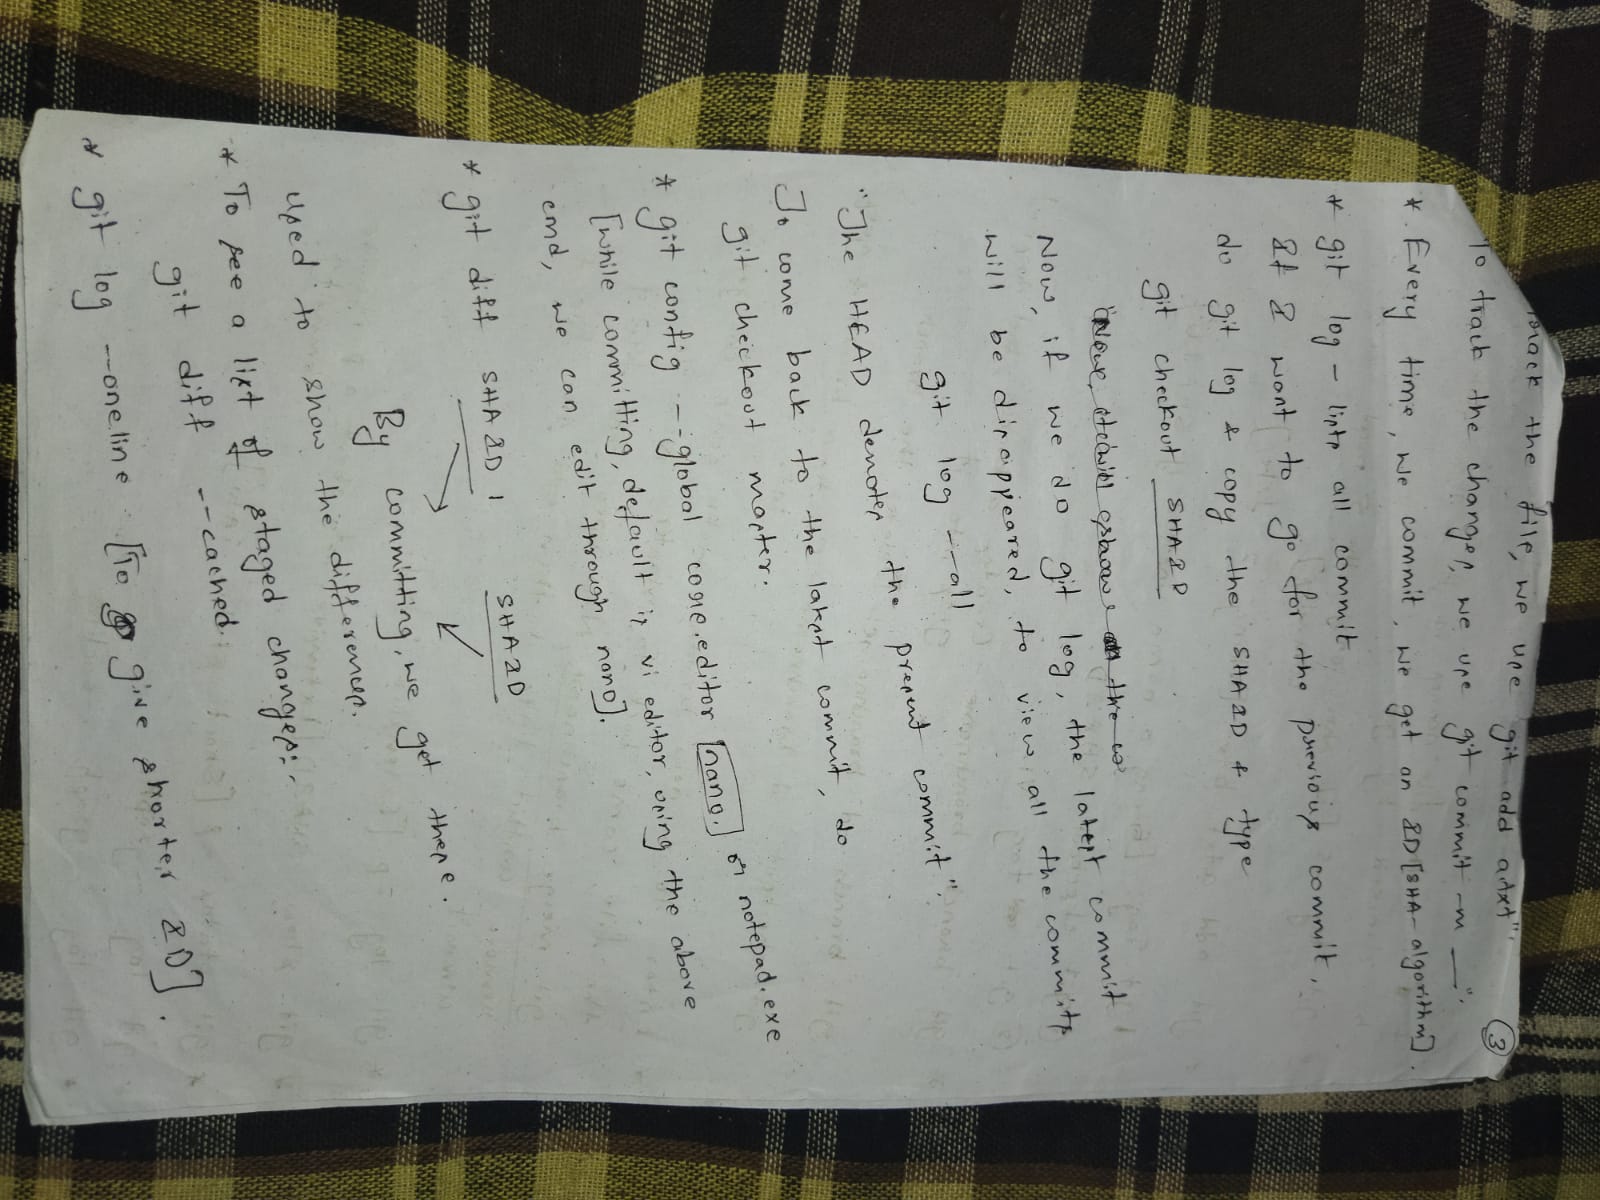 track the file, we use git add a.txt".
③
To track the changes, we use git commit -m __".
* Every time, we commit, we get an ID [SHA-algorithm].
* git log - lists all commit
If I want to go for the previous commit,
do git log & copy the SHA ID & type
git checkout SHA ID
Now, if we do git log, the latest commit
will be disappeared, to view all the commits
git log --all
"The HEAD denotes the present commit".
To come back to the latest commit, do
git checkout master.
* git config --global core.editor nano. or notepad.exe
[while committing, default is vi editor, using the above
cmd, we can edit through nano].
* git diff SHA ID 1 SHA ID
By committing, we get these.
used to show the differences.
* To see a list of staged changes:-
git diff --cached.
* git log --oneline [To give shorter ID].